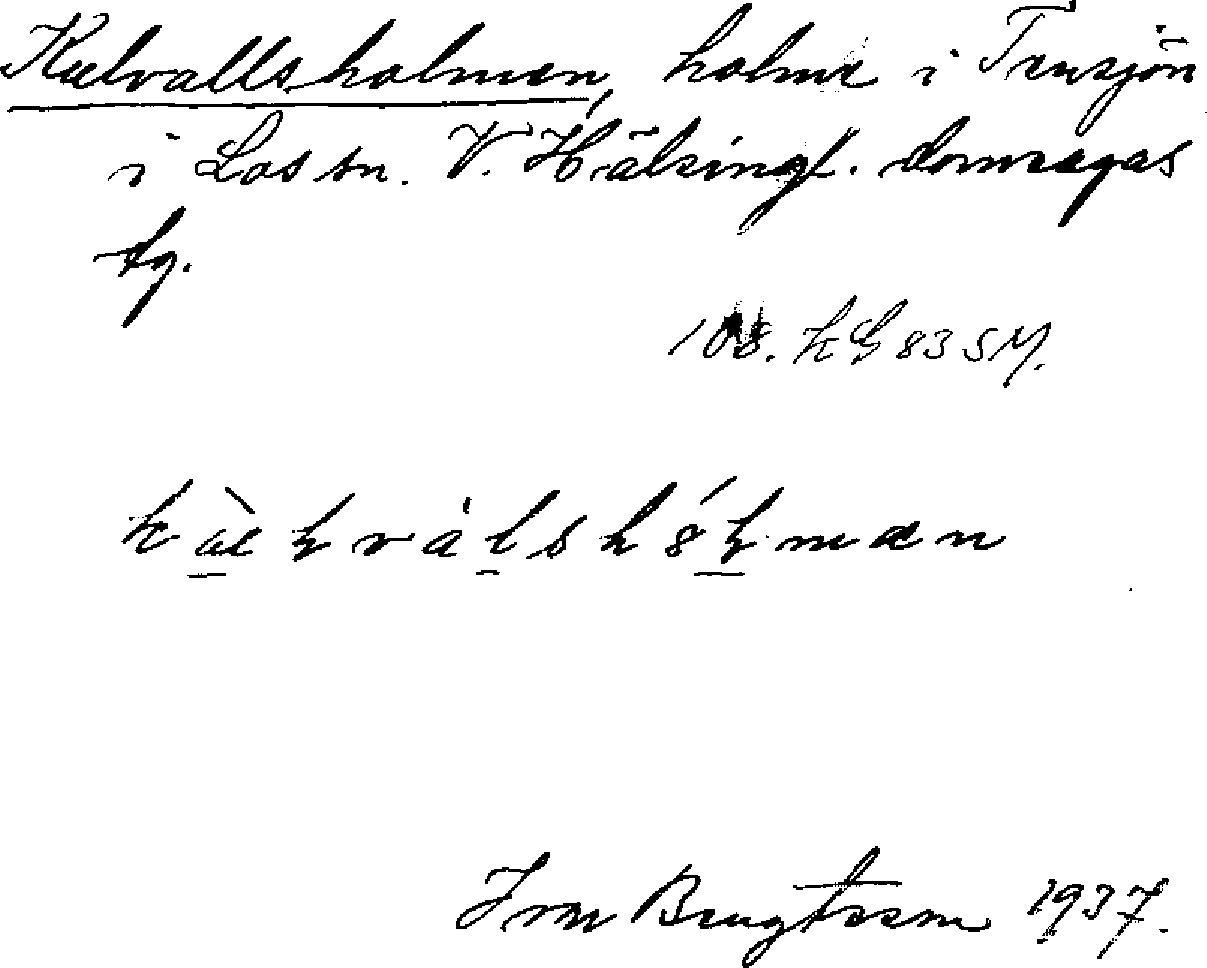 Kälvallsholmen, holme i Tensjön
i Los sn. V. Hälsingl. domsagas
tg.
108. KG 83 SM.
Ivar Bengtsson 1937.